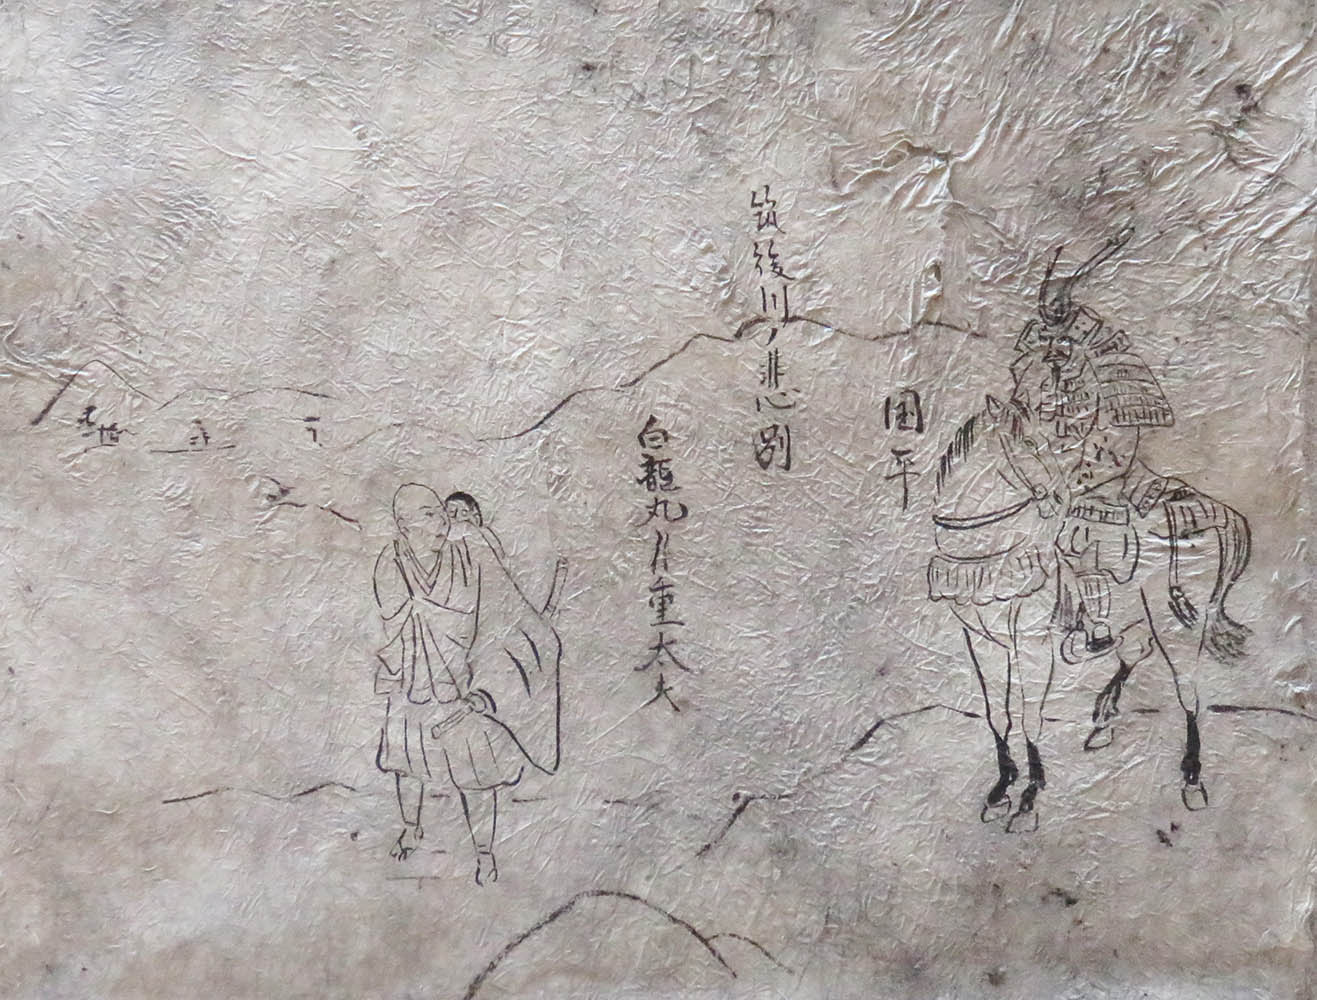 国平
筑後川ノ悲別
白龍丸 重太夫